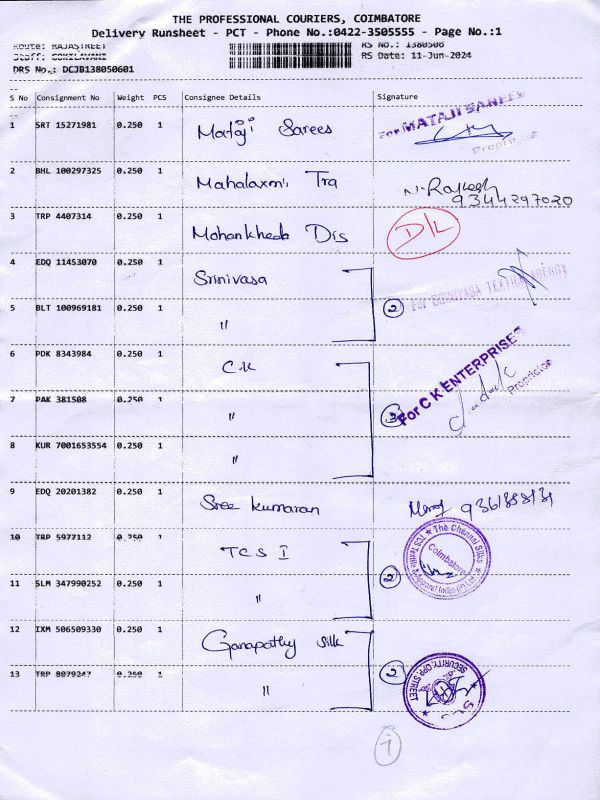 THE PROFESSIONAL COURIERS, COIMBATORE
Delivery Runsheet - PCT - Phone No.:0422-3505555 - Page No.:1
Route: RAJASTREET RS No.: 1380506
Staff: GOKILAVANI RS Date: 11-Jun-2024
DRS No.: DCJB138050601
S No Consignment No Weight PCS Consignee Details Signature
1 SRT 15271981 0.250 1 Mataji Sarees For MATAJI SAREES
Proprietor
2 BHL 100297325 0.250 1 Mahalaxmi Tra N. Rakesh
9344297020
3 TRP 4407314 0.250 1 Mohankheda Dis D/L
4 EDQ 11453070 0.250 1 Srinivasa
2 For SRINIVASA TEXTILE AGENCY
5 BLT 100969181 0.250 1 "
6 PDK 8343984 0.250 1 C.K
7 PAK 381508 0.250 1 " 3 For C K ENTERPRISES
Proprietor
8 KUR 7001653554 0.250 1 "
9 EDQ 20201382 0.250 1 Sree Kumaran
10 TRP 5977112 0.250 1 TCS I
2 The Chennai Silks
TCS Textile & Apparel India (P) Ltd
Coimbatore
11 SLM 347990252 0.250 1 "
12 IXM 506509330 0.250 1 Ganapathy Silk
13 TRP 8079247 0.250 1 " 2 SECURITY, OPP. STREET